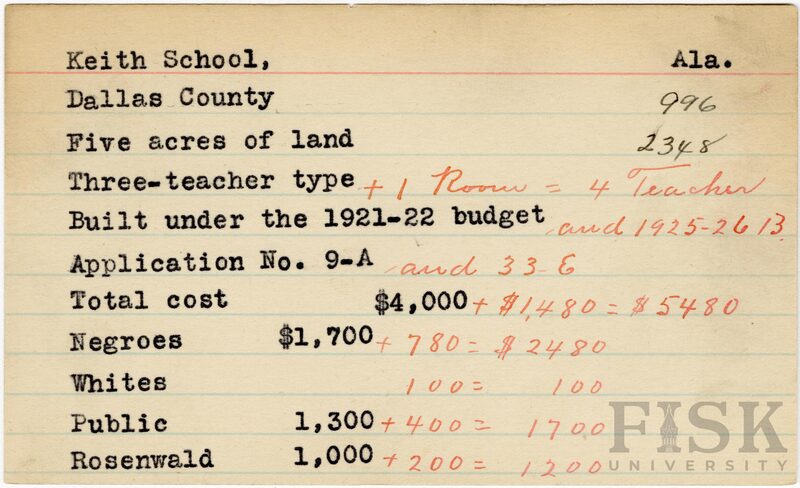 Keith School, Ala.
Dallas County 996
Five acres of land 2348
Three-teacher type + 1 Room = 4 Teacher
Built under the 1921-22 budget and 1925-26 B.
Application No. 9-A and 33-E
Total cost $4,000 + $1,480 = $5480
Negroes $1,700 + 780 = $2480
Whites 100 = 100
Public 1,300 + 400 = 1700
Rosenwald 1,000 + 200 = 1200
FISK
UNIVERSITY